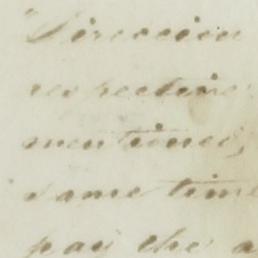 "Direction
respective
mentioned,
same time
pay the a